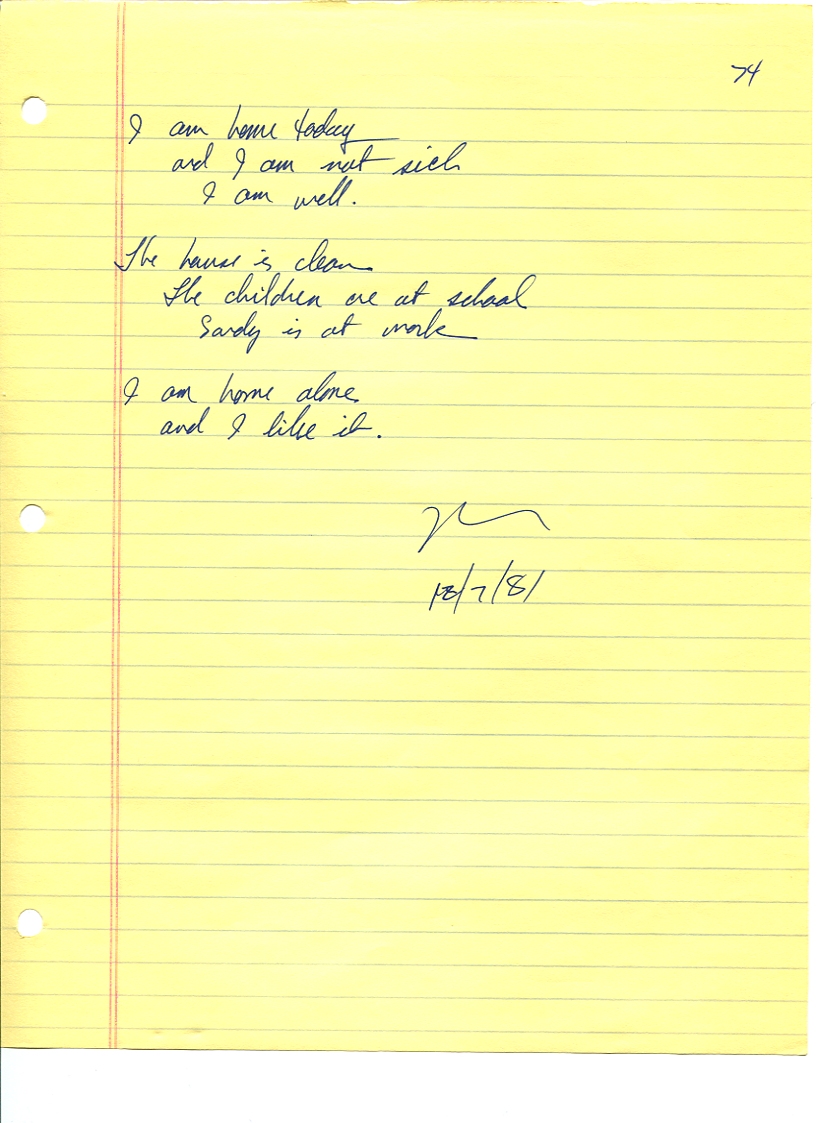 74
I am home today
and I am not sick
I am well.
The house is clean
The children are at school
Sandy is at work
I am home alone
and I like it.
/7/81